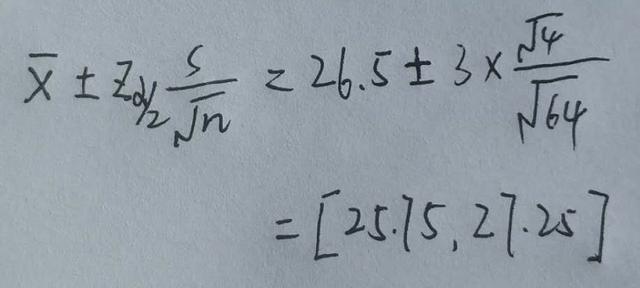 x̄ ± z_{α/2} s/√n = 26.5 ± 3 × √4/√64
= [25.75, 27.25]